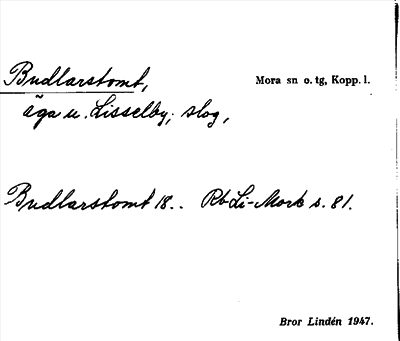 Budlarstomt, Mora sn o. tg, Kopp. l.
äga u. Lisselby; slog,
Budlarstomt 18.. Rb Li-Mora s. 81.
Bror Lindén 1947.